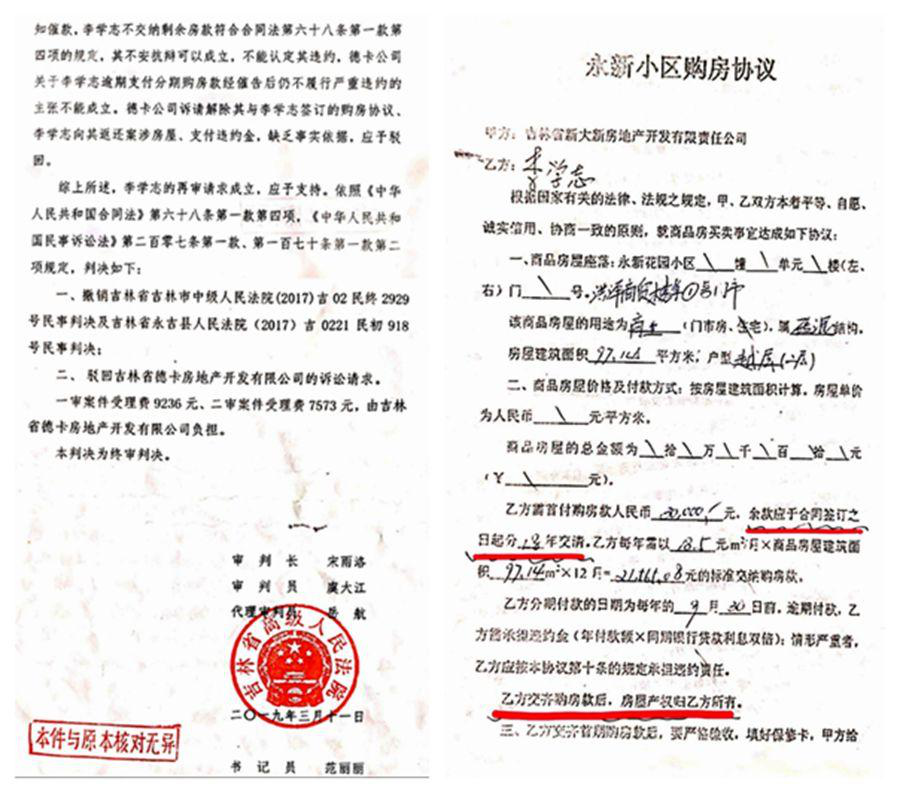 知催款，李学志不交纳剩余房款符合合同法第六十八条第一款第
四项的规定，其不安抗辩可以成立，不能认定其违约，德卡公司
关于李学志逾期支付分期购房款经催告后仍不履行严重违约的
主张不能成立。德卡公司诉请解除其与李学志签订的购房协议、
李学志向其返还案涉房屋、支付违约金，缺乏事实依据，应予驳
回。
综上所述，李学志的再审请求成立，应予支持。依照《中华
人民共和国合同法》第六十八条第一款第四项，《中华人民共和
国民事诉讼法》第二百零七条第一款、第一百七十条第一款第二
项规定，判决如下：
一、撤销吉林省吉林市中级人民法院(2017)吉 02 民终 2929
号民事判决及吉林省永吉县人民法院（2017）吉 0221 民初 918
号民事判决；
二、驳回吉林省德卡房地产开发有限公司的诉讼请求。
一审案件受理费 9236 元、二审案件受理费 7573 元，由吉林
省德卡房地产开发有限公司负担。
本判决为终审判决。
审 判 长 宋雨洛
审 判 员 虞大江
代理审判员 岳 航
吉林省高级人民法院
二〇一九年三月十一日
本件与原本核对无异
书 记 员 范丽丽
永新小区购房协议
甲方：吉林省新大新房地产开发有限责任公司
乙方：李学志
根据国家有关的法律、法规之规定，甲、乙双方本着平等、自愿、
诚实信用、协商一致的原则，就商品房买卖事宜达成如下协议：
一、商品房屋座落：永新花园小区 \ 幢 \ 单元 \ 楼(左、
右）门 \ 号。
该商品房屋的用途为商业（门市房、住宅)，属 结构，
房屋建筑面积 97.14 平方米，户型越层(二层)
二、商品房屋价格及付款方式：按房屋建筑面积计算，房屋单价
为人民币 \ 元平方米。
商品房屋的总金额为 \ 拾 \ 万 \ 千 \ 百 \ 拾 \ 元
(￥ \ 元)。
乙方需首付购房款人民币 20,000 元，余款应于合同签订之
日起分 18 年交清。乙方每年需以 18.5 元m²/月×商品房屋建筑面
积 97.14 m²×12 月= 21,565.08 元的标准交纳购房款。
乙方分期付款的日期为每年的 9 月 30 日前，逾期付款，乙
方需承担违约金（年付款额×同期银行贷款利息双倍)；情形严重者，
乙方应按本协议第十条的规定承担违约责任。
乙方交齐购房款后，房屋产权归乙方所有。
三、乙方交齐首期购房款后，要严格验收，填好保修卡，甲方给